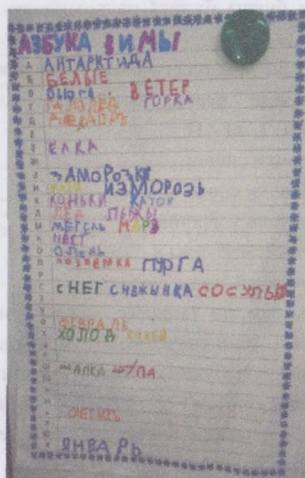 АЗБУКА ЗИМЫ
А АНТАРКТИДА
Б БЕЛЫЕ
В ВЬЮГА ВЕТЕР
Г ГОЛОЛЕД ГОРКА
Д ДЕКАБРЬ
Е
Ё ЕЛКА
Ж
З ЗАМОРОЗКИ
И ИЗМОРОЗЬ
К КОНЬКИ КАТОК
Л ЛЕД ЛЫЖЫ
М МЕТЕЛЬ МОРЗ
Н
О ОЛЕНЬ
П ПОЗЕМКА ПУРГА
Р
С СНЕГ СНЕЖЫНКА СОСУЛЬ
Т
У
Ф ФЕВРАЛЬ
Х ХОЛОД ХОКЕЙ
Ш ШАПКА ШУПА
Я ЯНВАРЬ